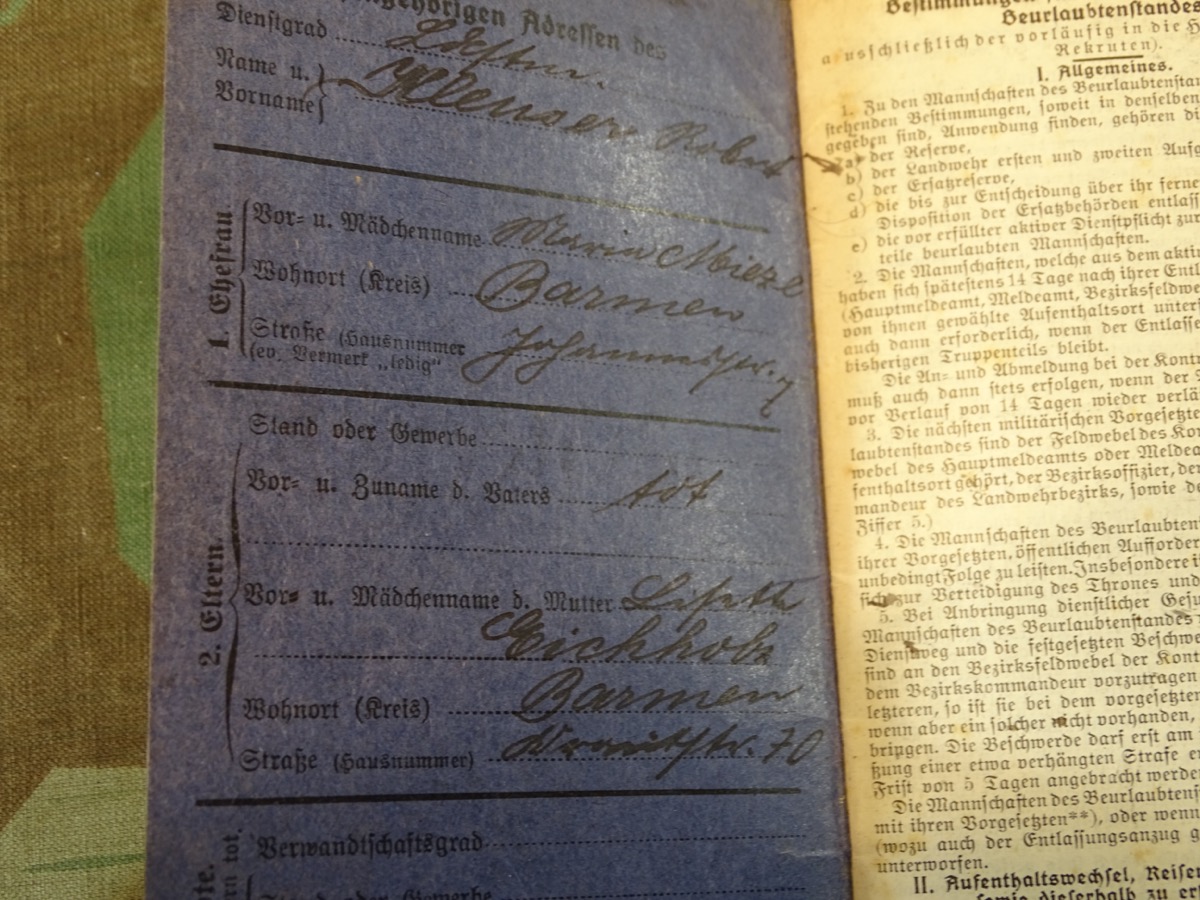 gehörigen Adressen des
Dienstgrad
Name u.
Vorname
Robert
1. Ehefrau
Vor- u. Mädchenname Maria
Wohnort (Kreis) Barmen
Straße (Hausnummer
(ev. Vermerk „ledig“
2. Eltern.
Stand oder Gewerbe
Vor- u. Zuname d. Vaters tot
Vor- u. Mädchenname d. Mutter Lisette
Eichholz
Wohnort (Kreis) Barmen
Straße (Hausnummer) 70
rn tot.
Verwandtschaftsgrad
Bestimmungen
Beurlaubtenstandes
ausschließlich der vorläufig in die H
Rekruten).
I. Allgemeines.
1. Zu den Mannschaften des Beurlaubtenstan
stehenden Bestimmungen, soweit in denselben
gegeben sind, Anwendung finden, gehören di
a) der Reserve,
b) der Landwehr ersten und zweiten Aufg
c) der Ersatzreserve,
d) die bis zur Entscheidung über ihr ferne
Disposition der Ersatzbehörden entlass
e) die vor erfüllter aktiver Dienstpflicht zu
teile beurlaubten Mannschaften.
2. Die Mannschaften, welche aus dem aktiv
haben sich spätestens 14 Tage nach ihrer Entl
(Hauptmeldeamt, Meldeamt, Bezirksfeldwe
von ihnen gewählte Aufenthaltsort unters
auch dann erforderlich, wenn der Entlasse
bisherigen Truppenteils bleibt.
Die An- und Abmeldung bei der Kontr
muß auch dann stets erfolgen, wenn der
vor Verlauf von 14 Tagen wieder verlä
3. Die nächsten militärischen Vorgesetzte
laubtenstandes sind der Feldwebel des Kon
webel des Hauptmeldeamts oder Meldea
fenthaltsort gehört, der Bezirksoffizier, der
mandeur des Landwehrbezirks, sowie de
Ziffer 5.)
4. Die Mannschaften des Beurlaubten
ihrer Vorgesetzten, öffentlichen Aufforder
unbedingt Folge zu leisten. Insbesondere i
sich zur Verteidigung des Thrones und
5. Bei Anbringung dienstlicher Gesu
Mannschaften des Beurlaubtenstandes
Dienstweg und die festgesetzten Beschwe
sind an den Bezirksfeldwebel der Kont
dem Bezirkskommandeur vorzutragen
letzteren, so ist sie bei dem vorgesetzter
wenn aber ein solcher nicht vorhanden,
bringen. Die Beschwerde darf erst am
ßung einer etwa verhängten Strafe er
Frist von 5 Tagen angebracht werde
Die Mannschaften des Beurlaubtens
mit ihren Vorgesetzten**), oder wenn
(wozu auch der Entlassungsanzug g
unterworfen.
II. Aufenthaltswechsel, Reise